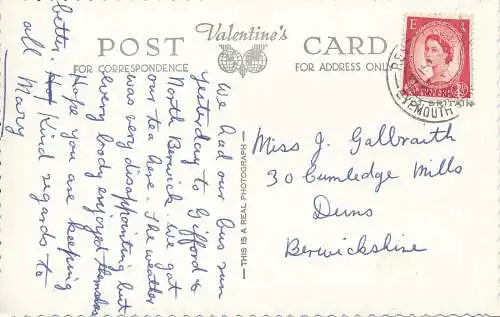 POST
Valentine's
CARD
FOR CORRESPONDENCE
FOR ADDRESS ONLY
We had our bus run
yesterday to Gifford &
North Berwick. We got
our tea here. The weather
was very disappointing but
every body enjoyed themselves
Hope you are keeping
better. Kind regards to
all Mary
THIS IS A REAL PHOTOGRAPH
Miss J. Galbraith
30 Cumledge Mills
Duns
Berwickshire
EYEMOUTH